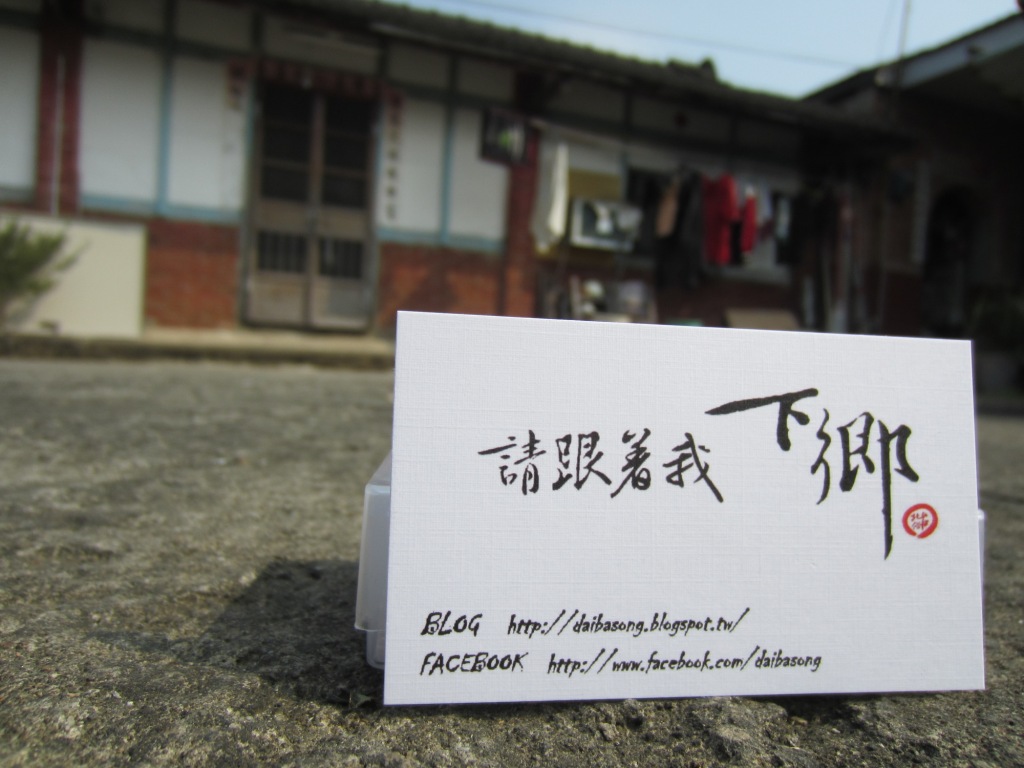 請跟著我下鄉
BLOG http://daibasong.blogspot.tw/
FACEBOOK http://www.facebook.com/daibasong